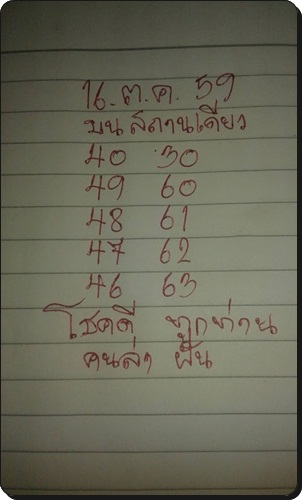 16.ต.ค. 59
บนสถานเดียว
40 50
49 60
48 61
47 62
46 63
โชคดี ทุกท่าน
คนล่า ฝัน